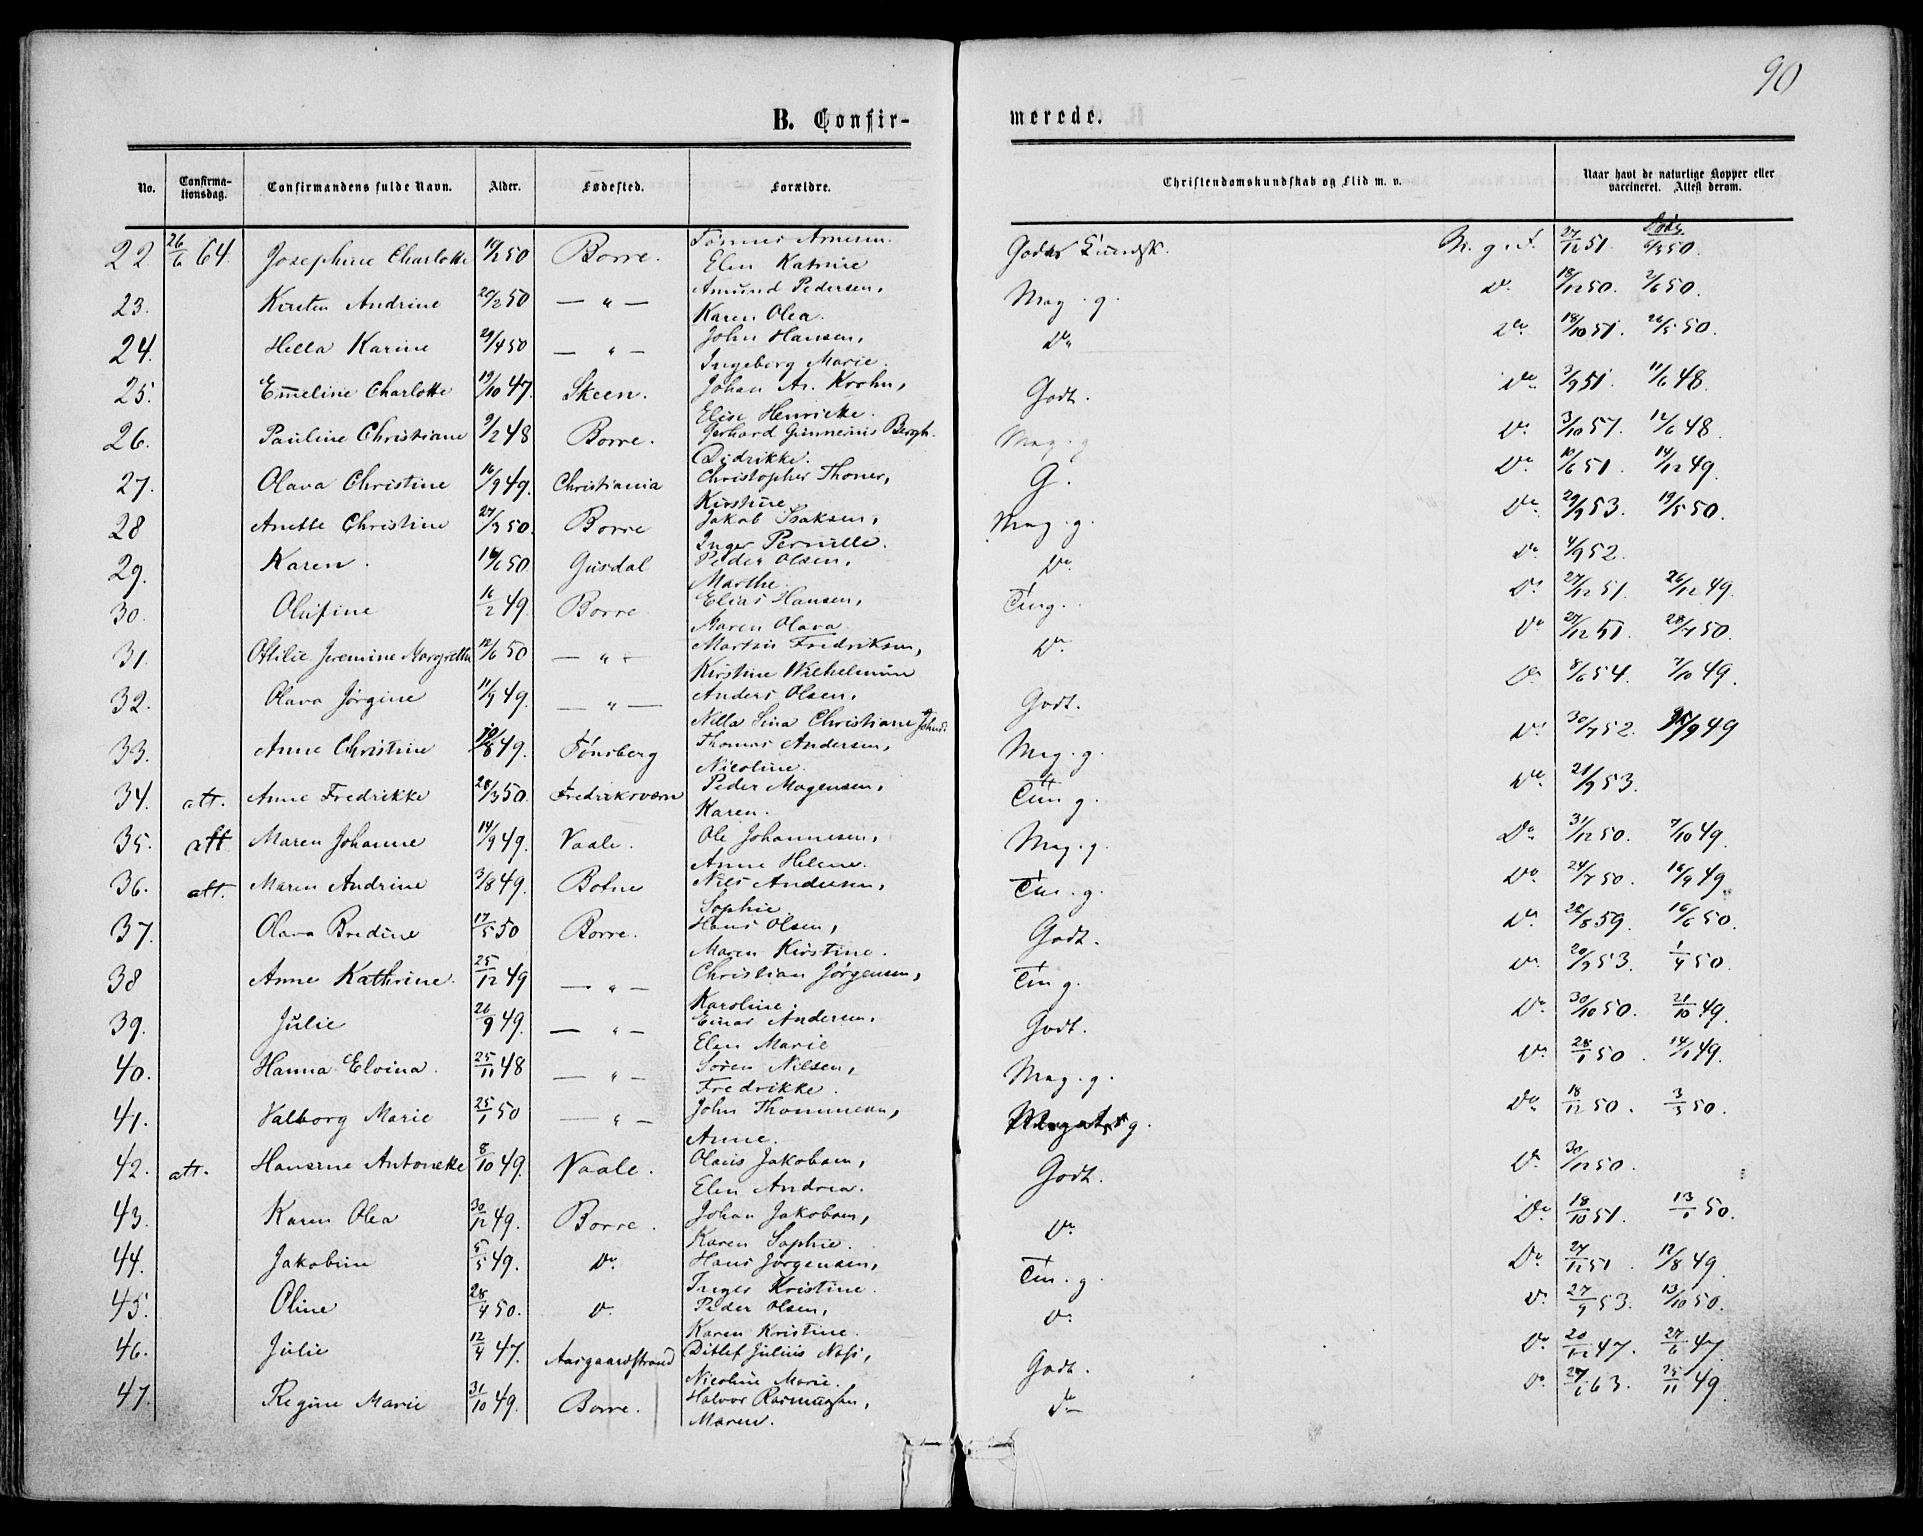 90
B. Confirmerede.
No. Confirmationsdag. Confirmandens fulde Navn. Alder. Fødested. Forældre. Christendomskundskab og Flid m. v. Naar havt de naturlige Kopper eller vaccineret. Attest derom.
22 26/6 64. Josephine Charlotte 50 Borre. Arnesen. Elen Katrine Godt 27/12 51. 50.
23. Kirsten Andrine 20/2 50 — " — Amund Pedersen, Karen Olea. Meg. g. Do. 18/12 50. 2/6 50.
24. Hella Karine 29/4 50 — " — John Hansen, Ingeborg Marie. Do Do 18/10 51. 26/5 50.
25. Emeline Charlotte 19/10 47. Skeen. Johan Krohn, Elise Henricke. Godt. Do 3/9 51. 11/6 48.
26. Pauline Christiane 9/2 48 Borre. Gerhard Gunnerius Bergh. Didrikke. Meg. g Do 3/10 51. 12/6 48.
27. Olava Christine 16/9 49. Christiania Christopher Thoner, Kirstine G. Do 10/6 51. 14/12 49.
28 Anette Christine 50. Borre Jakob Isaksen, Inger Pernille. Meg. g. Do 29/9 53. 19/5 50.
29. Karen. 50 Peder Olsen, Marthe. Do. Do 4/9 52.
30. Olufine 11/2 49. Borre Elias Hansen, Maren Olava. Do 27/12 51. 26/12 49.
31. Ottilie Jeremine Margrethe 12/6 50 — " — Martin Fredriksen, Kirstine Wilhelmine Do. Do 27/12 51. 28/7 50.
32. Olava Jørgine 11/9 49. — " — Anders Olsen, Nella Sina Christiane Godt. Do 8/6 54. 7/10 49.
33. Anne Christine 49. Tønsberg Thomas Andersen, Nicoline. Meg. g. Do 30/7 52. 49
34. att. Anne Fredrikke 28/3 50. Fredriksværn Peder Mogensen, Karen. g. Do 21/9 53.
35. att Maren Johanne 14/9 49. Vaale. Ole Johannesen, Anne Helene. Meg. g. Do 31/12 50. 7/10 49.
36. att. Maren Andrine 3/8 49. Botne Nils Andersen, Sophie g. Do 24/7 50. 16/9 49
37. Olava Bredine 17/5 50 Borre. Hans Olsen, Maren Kirstine. Godt. Do 28/8 59. 16/6 50.
38 Anne Kathrine. 25/12 49 — " — Christian Jørgensen, Karoline. g. Do 20/9 53. 1/4 50.
39. Julie 26/9 49. — " — Einar Andersen. Elen Marie Godt. Do 30/10 50. 21/10 49.
40. Hanna Elvina. 25/11 48 — " — Søren Nilsen, Fredrikke. Meg. g. Do 28/1 50. 14/1 49.
41. Valborg Marie 25/1 50 — " — John Thommesen, Anne. g. Do 18/12 50. 3/3 50.
42. att. Hansine Antonette 8/10 49. Vaale. Olaus Jakobsen, Elen Andrea. Godt. Do 30/12 50.
43. Karen Olea 30/12 49. Borre. Johan Jakobsen, Karen Sophie. Do. Do 18/10 51. 13/1 50.
44. Jakobine 5/5 49. Do. Hans Jørgensen, Inger Kristine. g. Do 27/12 51 12/8 49.
45. Oline 28/4 50. Do. Peder Olsen, Karen Kristine. Do. Do 27/9 53. 13/10 50.
46. Julie 12/4 47. Aasgaardstrand Ditlef Julius Nicoline Marie. Godt. Do 20/12 47. 27/6 47.
47. Regine Marie 31/10 49. Borre. Halvor Rasmussen, Maren. Do Do 27/6 63. 25/11 49.